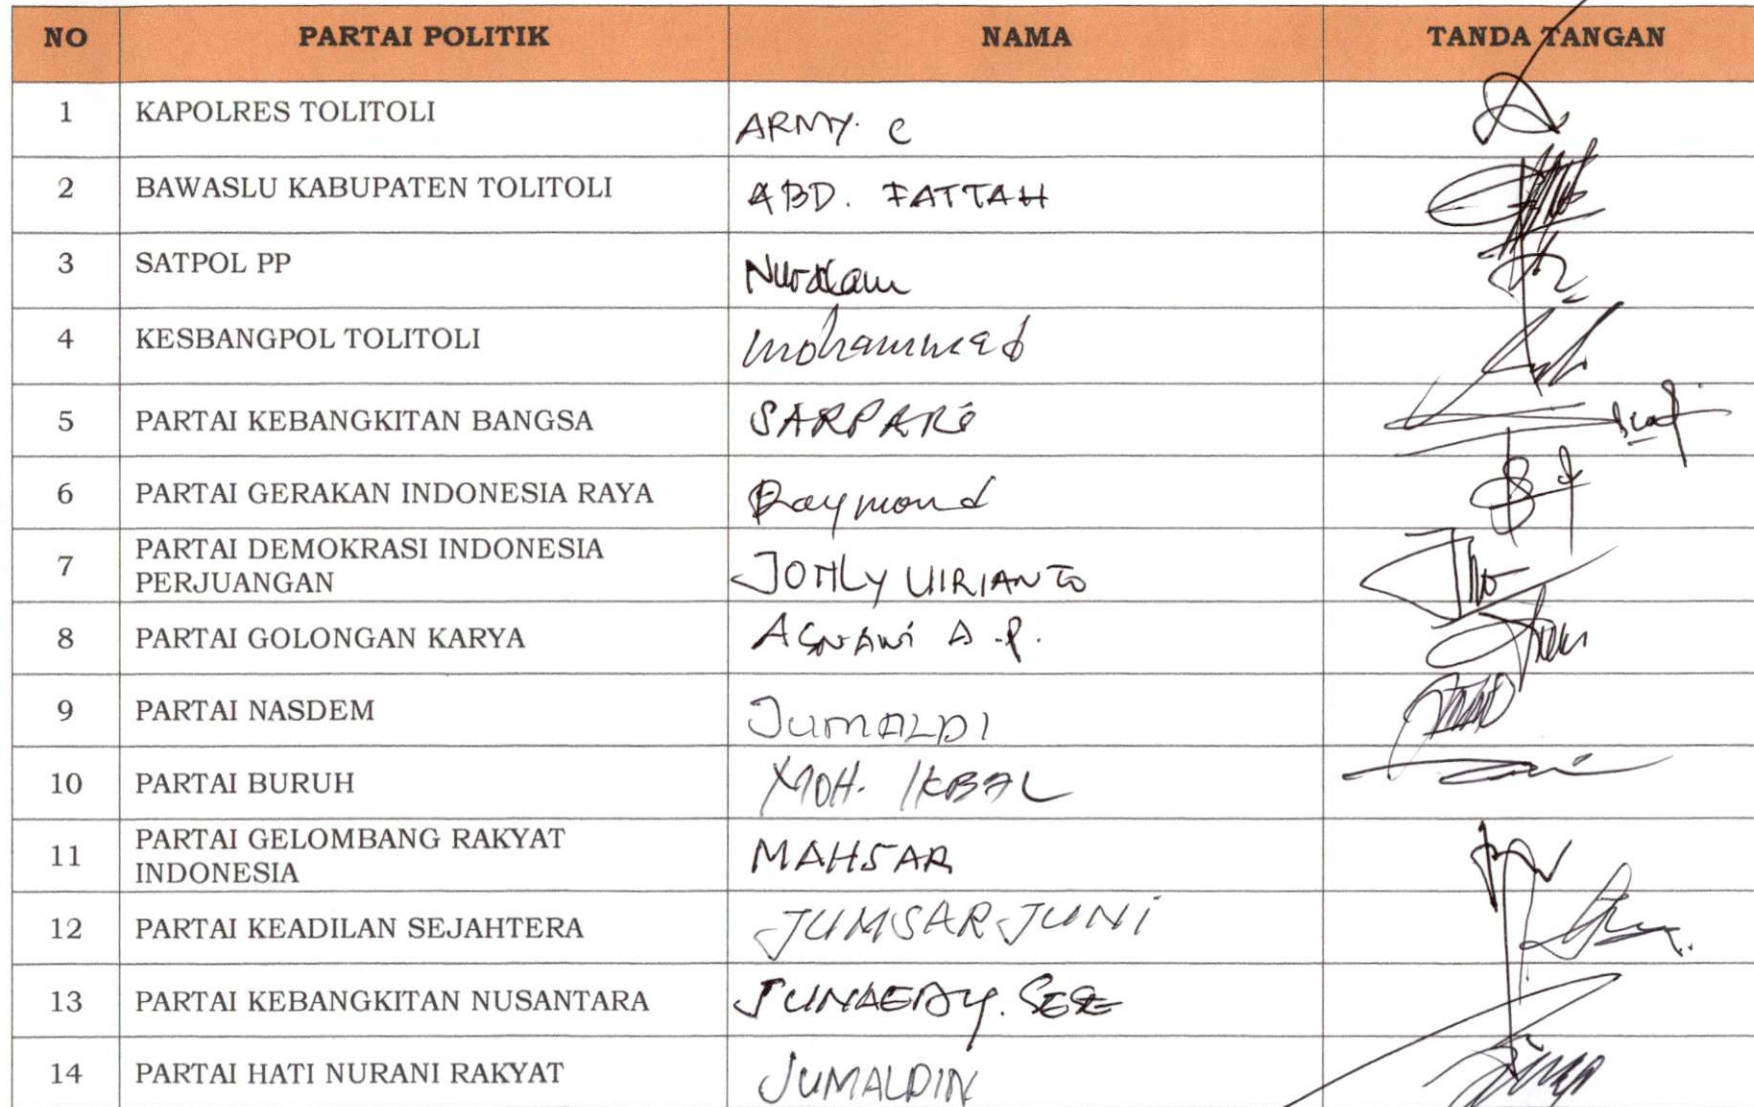 NO PARTAI POLITIK NAMA TANDA TANGAN
1 KAPOLRES TOLITOLI ARMY. C
2 BAWASLU KABUPATEN TOLITOLI ABD. FATTAH
3 SATPOL PP Nuralam
4 KESBANGPOL TOLITOLI Mohammad
5 PARTAI KEBANGKITAN BANGSA SARPARE
6 PARTAI GERAKAN INDONESIA RAYA Raymond
7 PARTAI DEMOKRASI INDONESIA
PERJUANGAN JOHLY UIRIANTO
8 PARTAI GOLONGAN KARYA A.P.
9 PARTAI NASDEM JUMALDI
10 PARTAI BURUH MOH. IKBAL
11 PARTAI GELOMBANG RAKYAT
INDONESIA MAHSAR
12 PARTAI KEADILAN SEJAHTERA JUMSAR JUNI
13 PARTAI KEBANGKITAN NUSANTARA JUNAEDY.
14 PARTAI HATI NURANI RAKYAT JUMALDIN